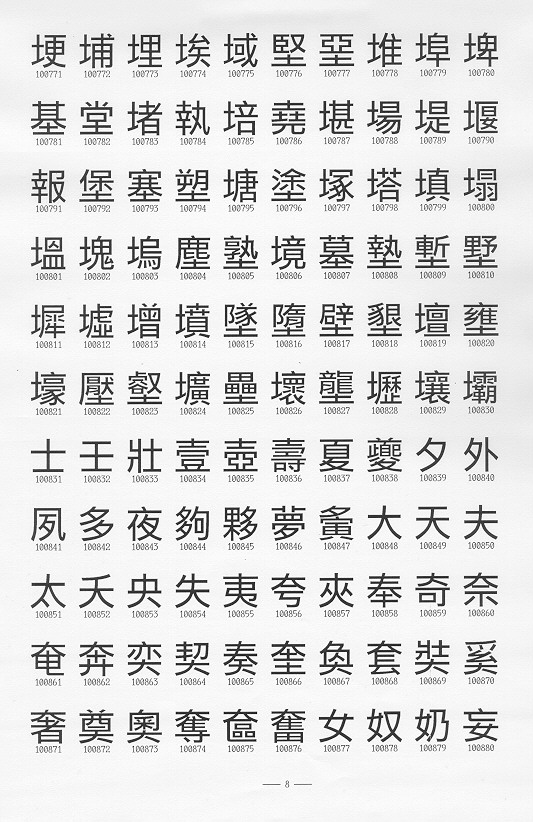 埂 埔 埋 埃 域 堅 堊 堆 埠 埤
100771 100772 100773 100774 100775 100776 100777 100778 100779 100780
基 堂 堵 執 培 堯 堪 場 堤 堰
100781 100782 100783 100784 100785 100786 100787 100788 100789 100790
報 堡 塞 塑 塘 塗 塚 塔 填 塌
100791 100792 100793 100794 100795 100796 100797 100798 100799 100800
塭 塊 塢 塵 塾 境 墓 墊 塹 墅
100801 100802 100803 100804 100805 100806 100807 100808 100809 100810
墀 墟 增 墳 墜 墮 壁 墾 壇 壅
100811 100812 100813 100814 100815 100816 100817 100818 100819 100820
壕 壓 壑 壙 壘 壞 壟 壢 壤 壩
100821 100822 100823 100824 100825 100826 100827 100828 100829 100830
士 壬 壯 壹 壺 壽 夏 夔 夕 外
100831 100832 100833 100834 100835 100836 100837 100838 100839 100840
夙 多 夜 夠 夥 夢 夤 大 天 夫
100841 100842 100843 100844 100845 100846 100847 100848 100849 100850
太 夭 央 失 夷 夸 夾 奉 奇 奈
100851 100852 100853 100854 100855 100856 100857 100858 100859 100860
奄 奔 奕 契 奏 奎 奐 套 奘 奚
100861 100862 100863 100864 100865 100866 100867 100868 100869 100870
奢 奠 奧 奪 奩 奮 女 奴 奶 妄
100871 100872 100873 100874 100875 100876 100877 100878 100879 100880
— 8 —